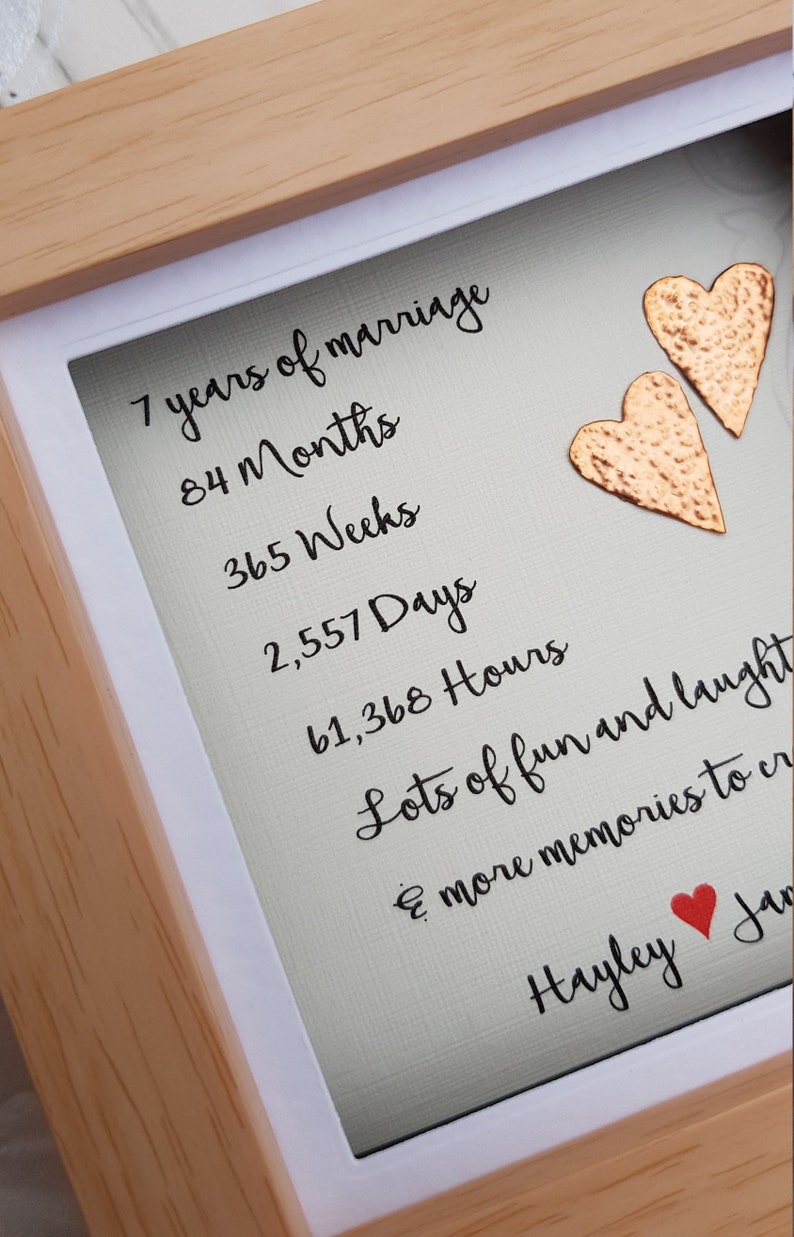 7 years of marriage
84 Months
365 Weeks
2,557 Days
61,368 Hours
Lots of fun and
& more memories to
Hayley ♥